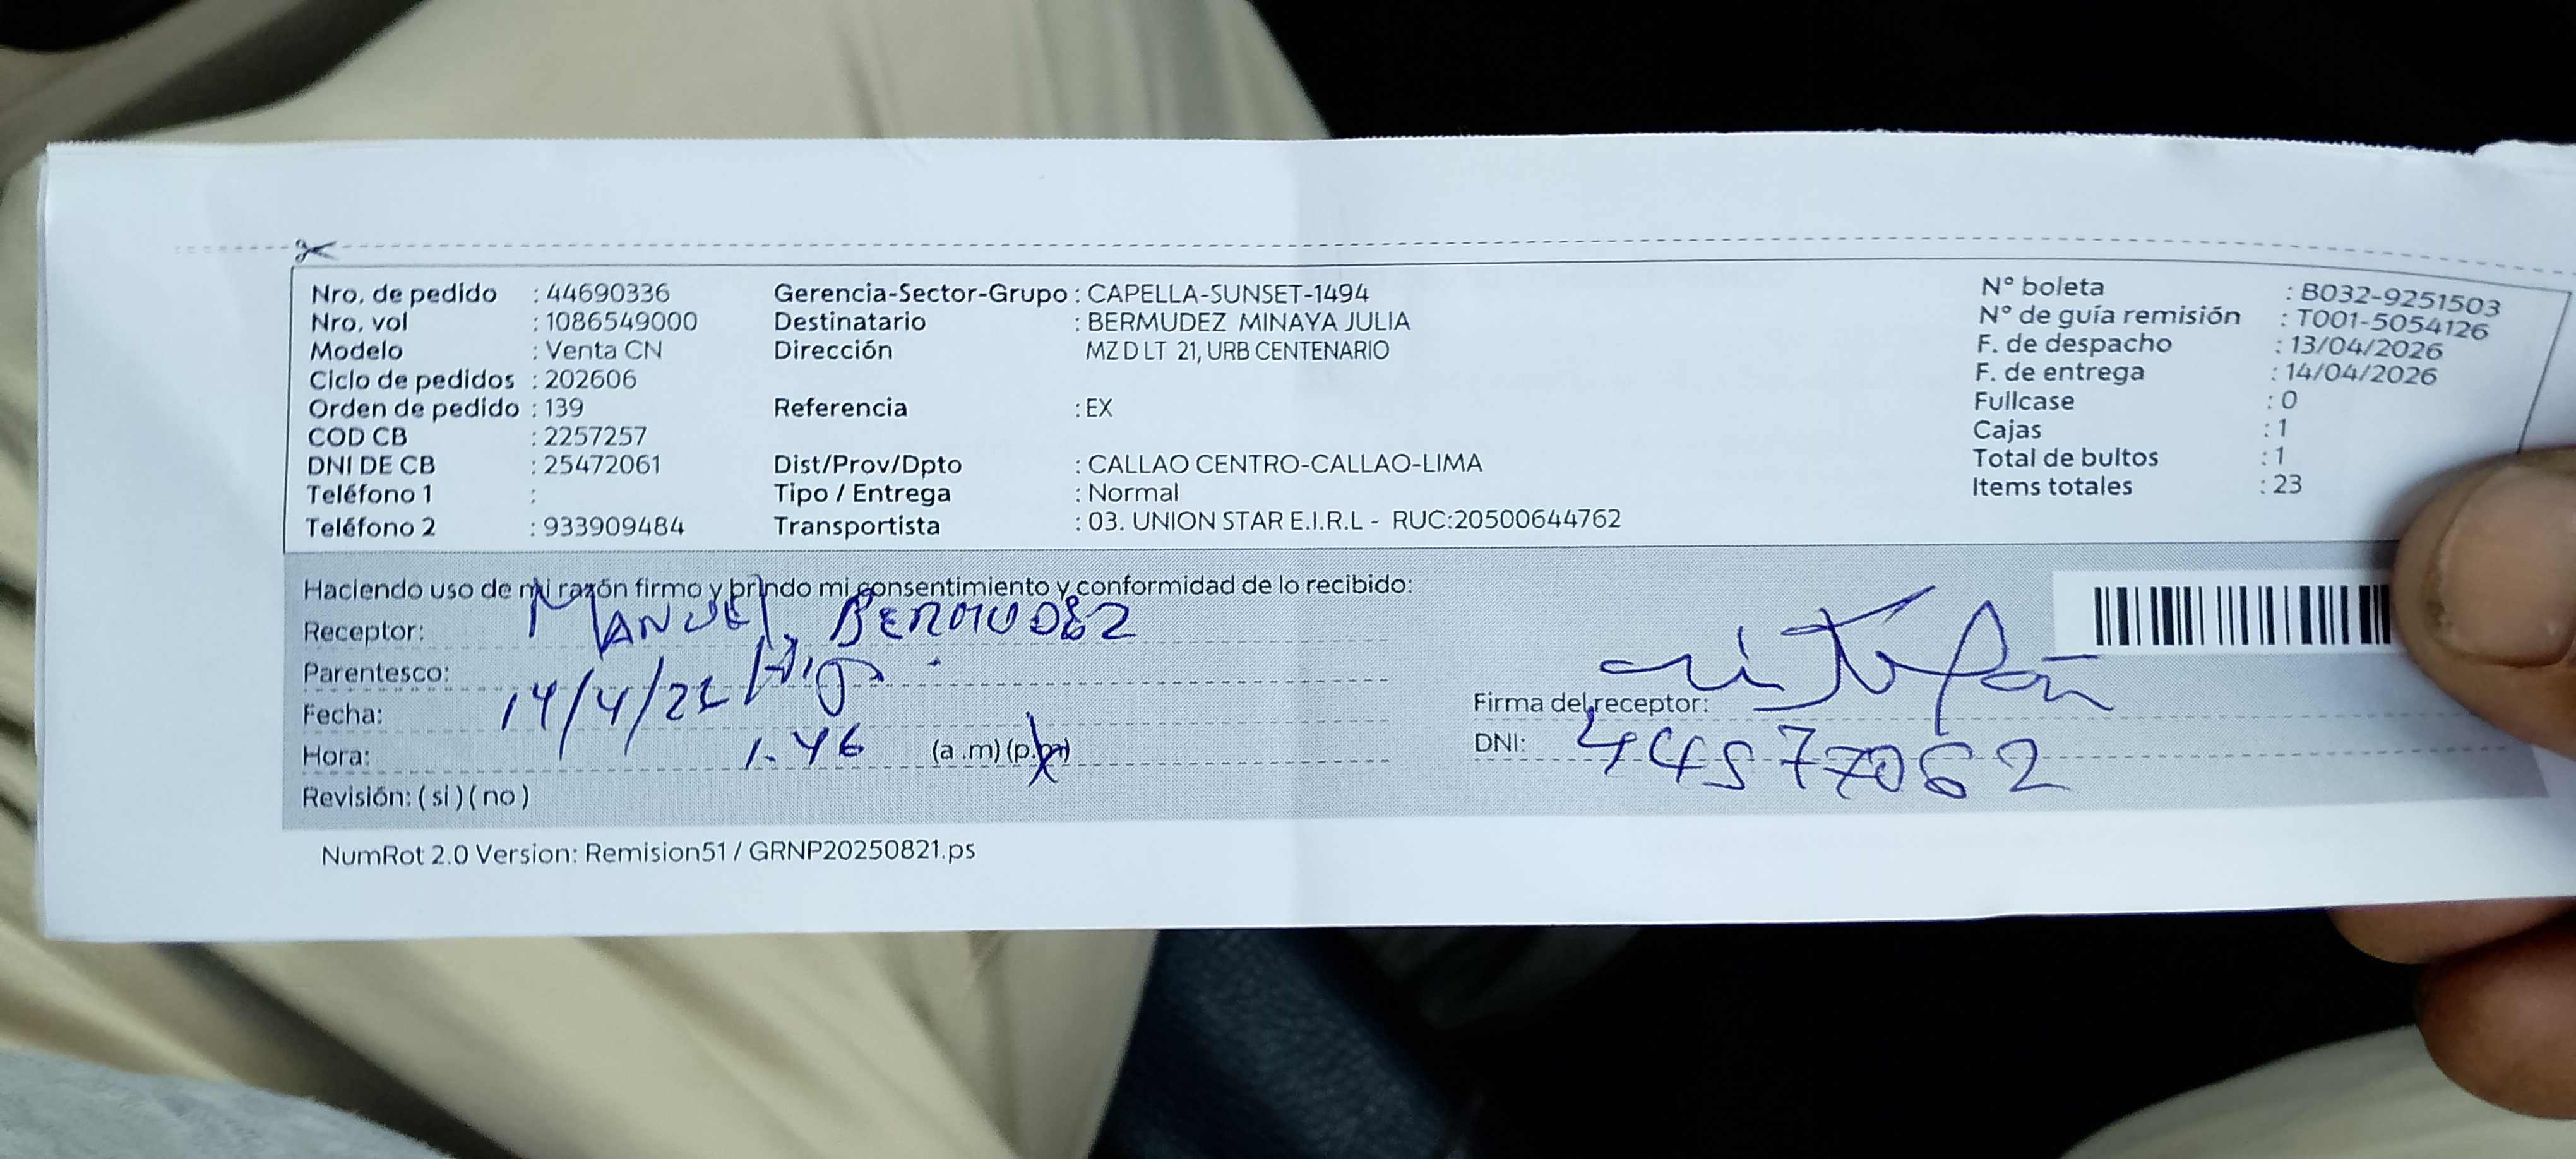 Nro. de pedido : 44690336
Nro. vol : 1086549000
Modelo : Venta CN
Ciclo de pedidos : 202606
Orden de pedido : 139
COD CB : 2257257
DNI DE CB : 25472061
Teléfono 1 :
Teléfono 2 : 933909484
Gerencia-Sector-Grupo : CAPELLA-SUNSET-1494
Destinatario : BERMUDEZ MINAYA JULIA
Dirección MZ D LT 21, URB CENTENARIO
Referencia : EX
Dist/Prov/Dpto : CALLAO CENTRO-CALLAO-LIMA
Tipo / Entrega : Normal
Transportista : 03. UNION STAR E.I.R.L - RUC:20500644762
N° boleta : B032-9251503
N° de guía remisión : T001-5054126
F. de despacho : 13/04/2026
F. de entrega : 14/04/2026
Fullcase : 0
Cajas : 1
Total de bultos : 1
Items totales : 23
Haciendo uso de mi razón firmo y brindo mi consentimiento y conformidad de lo recibido:
Receptor: MANUEL BERMUDEZ
Parentesco: Hijo
Fecha: 14/4/26
Hora: 1.46 (a .m) (p.m)
Revisión: ( si ) ( no )
Firma del receptor:
DNI: 44577062
NumRot 2.0 Version: Remision51 / GRNP20250821.ps